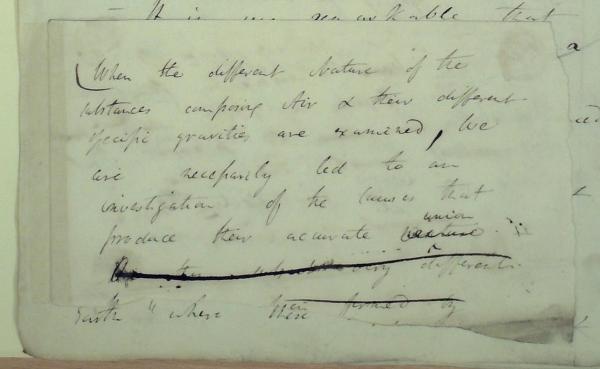 It is remarkable that
a
(When the different Nature of the
substances composing Air & their different
specific gravities are examined, We
are necessarily led to an
investigation of the Causes that
produce their accurate union
very different
Earth " where these formed by